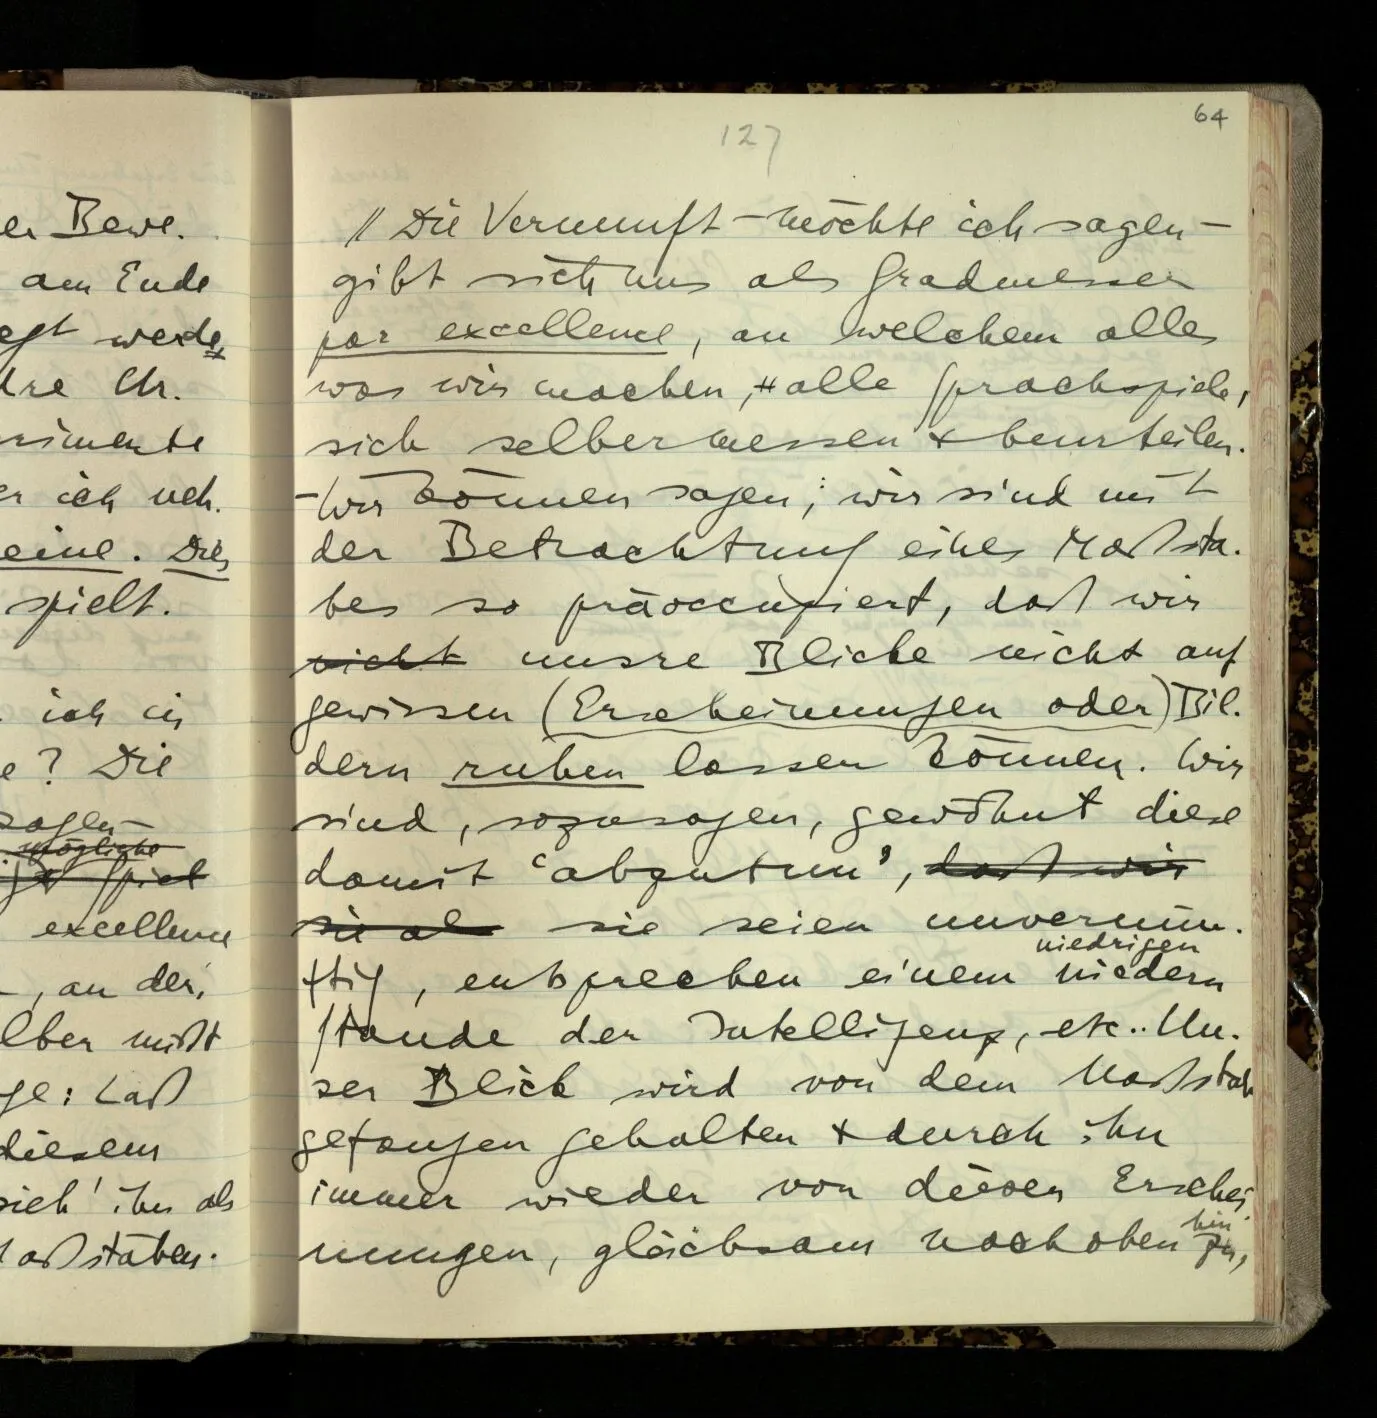 er Bewe.
am Ende
egt werde
dre Ur.
rimente
er ich neh.
eine. Dies
spielt.
ich in
e? Die
sagen –
mögliche
Spiel
excellence
–, an der,
lber mißt
ge: Laß
diesem
sieh' ihn als
aßstäben.
64
127
// Die Vernunft – möchte ich sagen –
gibt sich uns als Gradmesser
par excellence, an welchem alles
was wir machen, + alle Sprachspiele,
sich selber messen + beurteilen.
– Wir können sagen: wir sind mit
der Betrachtung eines Maßsta.
bes so präoccupiert, daß wir
nicht unsre Blicke nicht auf
gewissen (Erscheinungen oder) Bil.
dern ruhen lassen können. Wir
sind, sozusagen, gewöhnt diese
damit ‘abzutun’, daß wir
sie al sie seien unvernün.
niedrigen
ftig, entsprechen einem niedern
Stande der Intelligenz, etc.. Un.
ser Blick wird von dem Maßstab
gefangen gehalten + durch ihn
immer wieder von diesen Erschei.
hin
nungen, gleichsam nach oben zu,